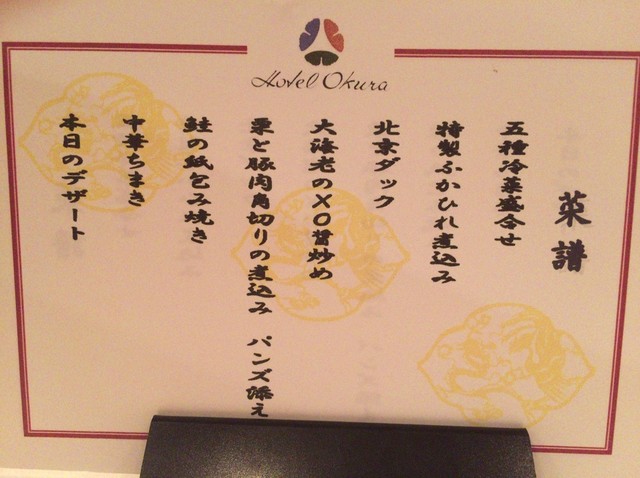 Hotel Okura
菜譜
五種冷菜盛合せ
特製ふかひれ煮込み
北京ダック
大海老のXO醤炒め
栗と豚肉角切りの煮込み　バンズ添え
鮭の紙包み焼き
中華ちまき
本日のデザート